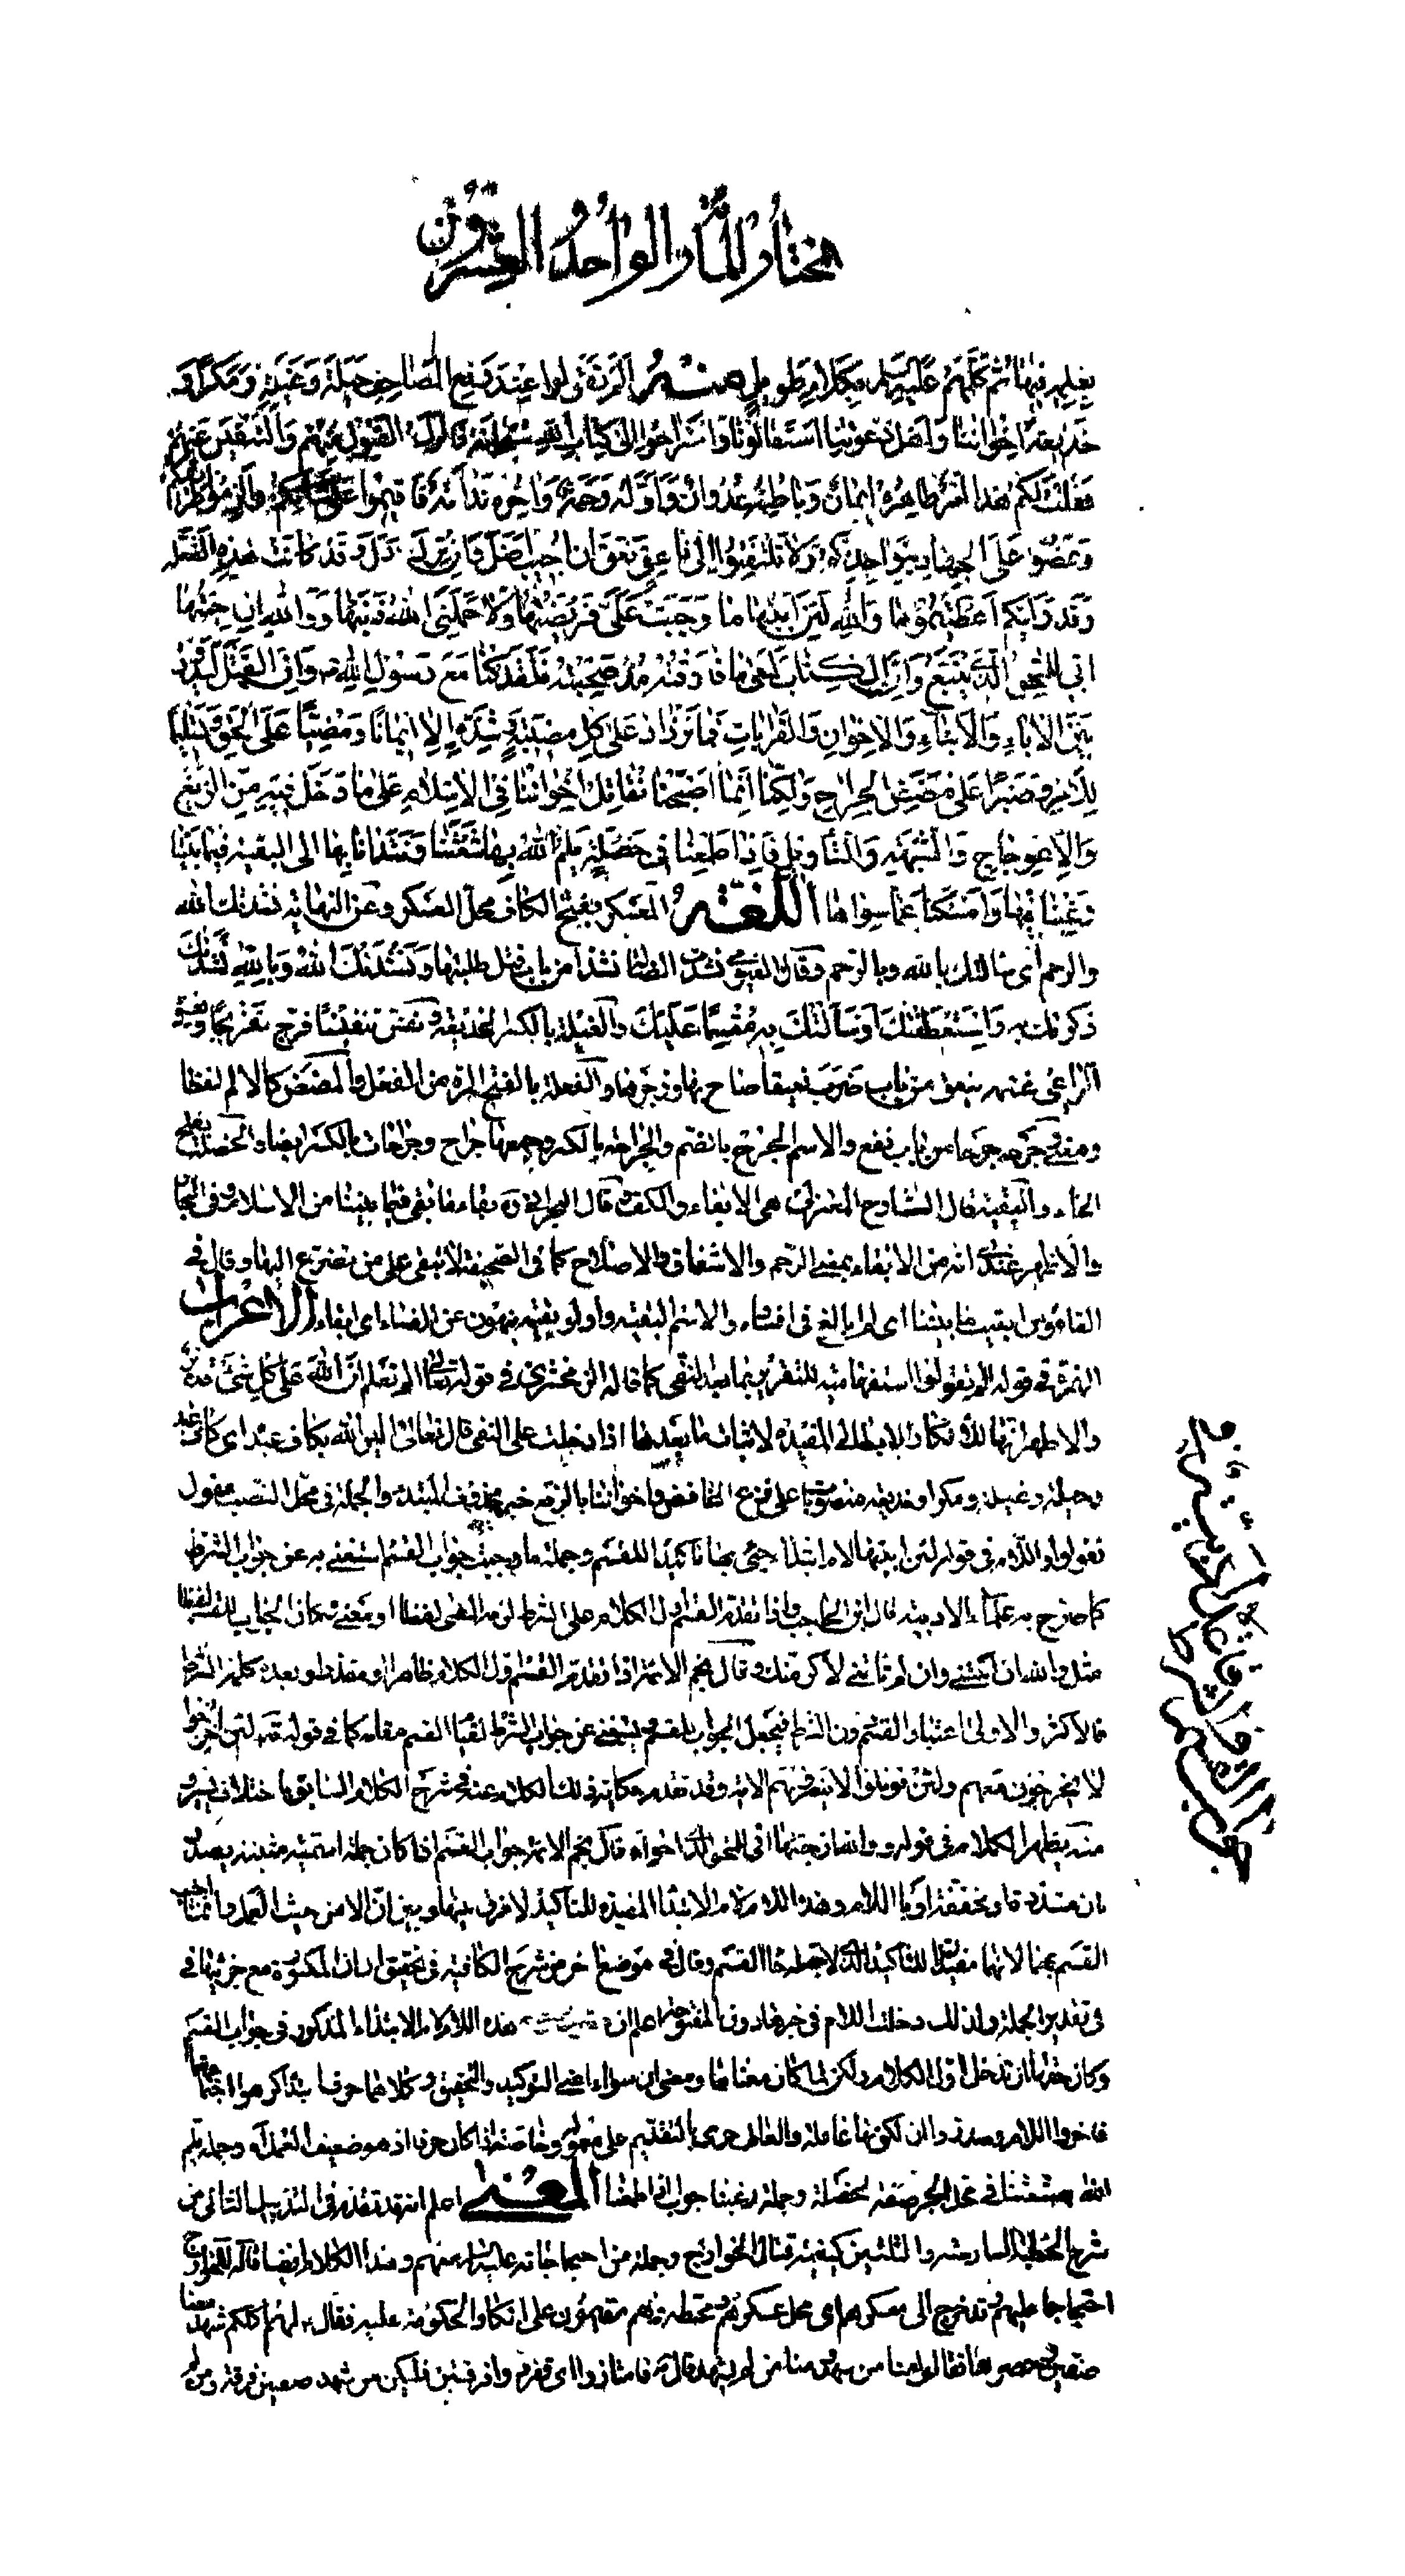 المختار المأة والواحد والعشرون
بعلمه فيها ثم كلمهم عليه السلام بكلام طويل منه ألم تقولوا عند رفع المصاحف حيلة وغيلة ومكرا و
خديعة إخواننا وأهل دعوتنا استقالونا واستراحوا إلى كتاب الله سبحانه فالرأي القبول منهم والتنفيس عنهم
فقلت لكم هذا أمر ظاهره إيمان وباطنه عدوان وأوله رحمة وآخره ندامة فأقيموا على شأنكم والزموا طريقتكم
وعضوا على الجهاد بنواجذكم ولا تلتفتوا إلى ناعق نعق إن أجيب أضل وإن ترك ذل وقد كانت هذه الفعلة
وقد رأيتكم أعطيتموها والله لئن أبيتها ما وجبت علي فريضتها ولا حملني الله ذنبها ووالله إن جئتها
إني للمحق الذي يتبع وإن الكتاب لمعي ما فارقته مذ صحبته فلقد كنا مع رسول الله وإن القتل ليدور
بين الآباء والأبناء والإخوان والقرابات فما نزداد على كل مصيبة وشدة إلا إيمانا ومضيا على الحق وتسليما
للأمر وصبرا على مضض الجراح ولكنا إنما أصبحنا نقاتل إخواننا في الإسلام على ما دخل فيه من الزيغ
والاعوجاج والشبهة والتأويل فإذا طمعنا في خصلة يلم الله بها شعثنا ونتدانى بها إلى البقية فيما بيننا
رغبنا فيها وأمسكنا عما سواها اللغة المعسكر بفتح الكاف محل العسكر وعن النهاية نشدتك الله
والرحم أي سألتك بالله وبالرحم وقال الفيومي نشدت الضالة نشدا من باب قتل طلبتها ونشدتك الله وبالله نشدتك
ذكرتك به واستعطفتك أو سألتك به مقسما عليك والغيلة بالكسر الخديعة ونفس تنفيسا فرج تفريجا ونعق
الراعي بغنمه ينعق من باب ضرب نعيقا صاح بها وزجرها والفعلة بالفتح المرة من الفعل والمضض كالألم لفظا
ومعنى جرحه جرحا من باب نفع والاسم الجرح بالضم والجراحة بالكسر وجمعها جراح وجراحات بالكسر أيضا والخصلة بفتح
الخاء والبقية قال الشارح المعتزلي هي الإبقاء والكف قال البحراني ره بقاء ما بقي فيما بيننا من الإسلام وفي البحار
والأظهر عندي أنه من الإبقاء بمعنى الرحم والإشفاق والإصلاح كما في الصحيفة لا تبقى على من تضرع إليها وقال في
القاموس أبقيت ما بيننا أي لم أبالغ في إفساده والاسم البقية وأولو بقية ينهون عن الفساد أي إبقاء الاعراب
الهمزة في قوله ألم تقولوا استفهامية للتقرير بما بعد النفي كما قاله الزمخشري في قوله تعالى ألم تعلم أن الله على كل شيء قدير
والأظهر أنها للانكار الإبطالي المفيدة لإثبات ما بعدها إذا دخلت على النفي قال تعالى أليس الله بكاف عبده أي كاف عبده
وحيلة وغيلة ومكرا وخديعة منصوبات على نزع الخافض وإخواننا بالرفع خبر محذوف المبتدأ والجملة في محل النصب مقول
تقولوا واللام في قوله لئن أبيتها لام ابتدأ جيء بها تأكيدا للقسم وجملة ما وجبت جواب القسم استغني به عن جواب الشرط
كما صرح به علماء الأدبية قال ابن الحاجب وإذا تقدم القسم أول الكلام على الشرط لزمه المضي لفظا أو معنى وكان الجواب للقسم لفظا
مثل والله إن أتيتني وإن لم تأتني لأكرمتك وقال نجم الأئمة إذا تقدم القسم أول الكلام ظاهرا أو مقدرا وبعده كلمة الشرط
فالأكثر والأولى اعتبار القسم دون الشرط فيجعل الجواب للقسم ويستغنى عن جواب الشرط لقيام القسم مقامه كما في قوله تعالى لئن أخرجوا
لا يخرجون معهم ولئن قوتلوا لا ينصرونهم الآية وقد تقدم حكاية ذلك الكلام عنه في شرح الكلام السابق باختلاف يسير و
منه يظهر الكلام في قوله ووالله إن جئتها إني للمحق الذي اخواه قال نجم الأئمة جواب القسم إذا كان جملة اسمية مثبتة يصدر
بان مشددة أو مخففة أو باللام وهذه اللام لام الابتدأ المفيدة للتأكيد لا فرق بينها وبين إن إلا من حيث العمل وإنما أجيب
القسم بهما لأنهما مفيدان للتأكيد الذي لأجله جاء القسم وقال في موضع آخر من شرح الكافية في تحقيق أن إن المكسورة مع جزئيها في
في تقدير الجملة ولذلك دخلت اللام في خبرها دون المفتوحة اعلم أن هذه اللام لام الابتداء المذكورة في جواب القسم
وكان حقها أن تدخل أول الكلام ولكن لما كان معناها ومعنى إن سواء أعني التوكيد والتحقيق وكلاهما حرف ابتداء كرهوا اجتماعهما
فأخروا اللام وصدروا إن لكونها عاملة والعامل حرى بالتقديم على معموله وخاصة إذا كان حرفا إذ هو ضعيف العمل وجملة يلم
الله به شعثنا في محل الجر صفة لخصلة وجملة رغبنا جواب إذا طمعنا المعنى اعلم أنه قد تقدم في التذييل الثاني من
شرح الخطبة السادسة والثلاثين كيفية قتال الخوارج وجملة من احتجاجاته عليه السلام معهم وهذا الكلام أيضا قاله للخوارج
احتجاجا عليهم وقد خرج إلى معسكرهم أي محل عسكرهم ومحطهم وهم مقيمون على إنكار الحكومة عليه فقال لهم أكلكم شهد معنا
صفين وحصر بها فقالوا منا من شهد ومنا من لم يشهد قال فامتازوا أي تفرقوا فرقتين فليكن من شهد صفين فرقة ومن لم